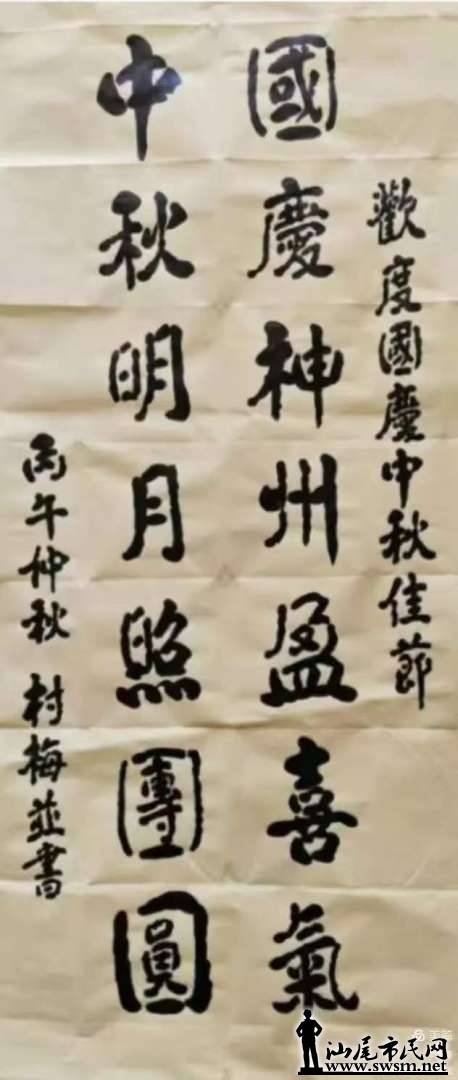 歡度國慶中秋佳節
國慶神州盈喜氣
中秋明月照團圓
丙午仲秋 村梅並書
汕尾市民网
www.swsm.net